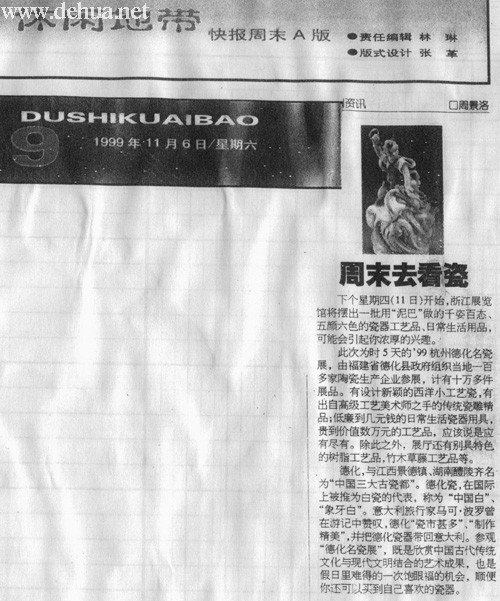 www.dehua.net
休闲地带
快报周末 A 版
●责任编辑 林 琳
●版式设计 张 革
DUSHIKUAIBAO
9
1999 年·11 月 6 日/星期六
资讯
□周景洛
周末去看瓷
下个星期四(11 日)开始,浙江展览
馆将摆出一批用“泥巴”做的千姿百态、
五颜六色的瓷器工艺品、日常生活用品,
可能会引起你浓厚的兴趣。
此次为时 5 天的’99 杭州德化名瓷
展，由福建省德化县政府组织当地一百
多家陶瓷生产企业参展，计有十万多件
展品。有设计新颖的西洋小工艺瓷,有
出自高级工艺美术师之手的传统瓷雕精
品;低廉到几元钱的日常生活瓷器用具,
贵到价值数万元的工艺品，应该说是应
有尽有。除此之外，展厅还有别具特色
的树脂工艺品,竹木草藤工艺品等。
德化,与江西景德镇、湖南醴陵齐名
为“中国三大古瓷都”。德化瓷,在国际
上被推为白瓷的代表，称为“中国白”、
“象牙白”。意大利旅行家马可·波罗曾
在游记中赞叹,德化“瓷市甚多”、“制作
精美”,并把德化瓷器带回意大利。参观
“德化名瓷展”，既是欣赏中国古代传统
文化与现代文明结合的艺术成果，也是
假日里难得的一次饱眼福的机会，顺便
你还可以买到自己喜欢的瓷器。